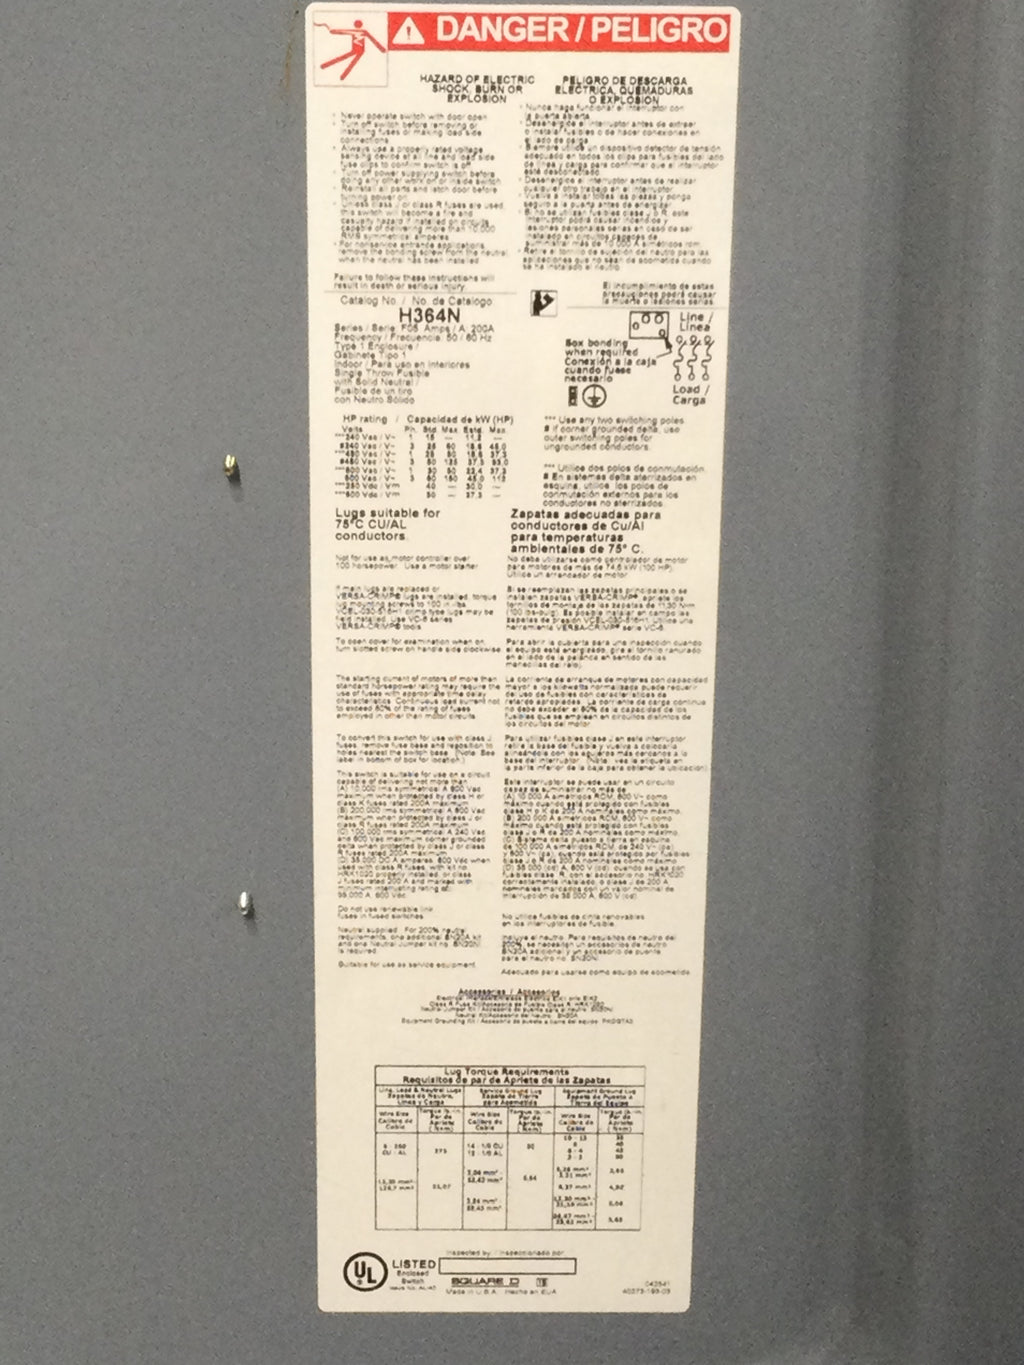 DANGER / PELIGRO
HAZARD OF ELECTRIC
SHOCK, BURN OR
EXPLOSION
Never operate switch with door open
Turn off switch before removing or
installing fuses or making load side
connections
Always use a properly rated voltage
sensing device at all line and load side
fuse clips to confirm switch is off
Turn off power supplying switch before
doing any other work on or inside switch
Reinstall all parts and latch door before
turning power on
Unless class J or class R fuses are used,
this switch will become a fire and
casualty hazard if installed on circuits
capable of delivering more than 10,000
RMS symmetrical amperes
For nonservice entrance applications,
remove the bonding screw from the neutral
when the neutral has been installed
Failure to follow these instructions will
result in death or serious injury.
PELIGRO DE DESCARGA
ELECTRICA, QUEMADURAS
O EXPLOSION
Nunca haga funcionar el interruptor con
la puerta abierta
Desenergice el interruptor antes de extraer
o instalar fusibles o de hacer conexiones en
el lado de carga
Siempre utilice un dispositivo detector de tensión
adecuado en todos los clips para fusibles del lado
de línea y carga para confirmar que el interruptor
esté desconectado
Desenergice el interruptor antes de realizar
cualquier otro trabajo en el interruptor
Vuelva a instalar todas las piezas y ponga
seguro a la puerta antes de energizar
Si no se utilizan fusibles clase J o R, este
interruptor podrá causar incendios y
lesiones personales serias en caso de ser
instalado en circuitos capaces de
suministrar más de 10 000 A simétricos rcm
Retire el tornillo de sujeción del neutro para las
aplicaciones que no sean de acometida cuando
se ha instalado el neutro
El incumplimiento de estas
precauciones podrá causar
la muerte o lesiones serias.
Catalog No. / No. de Catalogo
H364N
Series / Serie F05 Amps / A 200A
Frequency / Frecuencia 50 / 60 Hz
Type 1 Enclosure /
Gabinete Tipo 1
Indoor / Para uso en interiores
Single Throw Fusible
with Solid Neutral /
Fusible de un tiro
con Neutro Sólido
Line /
Línea
Box bonding
when required
Conexión a la caja
cuando fuese
necesario
Load /
Carga
HP rating / Capacidad de kW (HP)
Volts Ph. Std. Max Estd. Max
***240 Vac / V~ 1 15 — 11,2 —
#240 Vac / V~ 3 25 60 18,6 45,0
***480 Vac / V~ 1 25 50 18,6 37,3
#480 Vac / V~ 3 50 125 37,3 93,0
***600 Vac / V~ 1 30 50 22,4 37,3
600 Vac / V~ 3 60 150 45,0 112
***250 Vdc / V 40 — 30,0 —
***600 Vdc / V 50 — 37,3 —
*** Use any two switching poles
# If corner grounded delta, use
outer switching poles for
ungrounded conductors.
*** Utilice dos polos de conmutación.
# En sistemas delta aterrizados en
esquina, utilice los polos de
conmutación externos para los
conductores no aterrizados.
Lugs suitable for
75°C CU/AL
conductors.
Zapatas adecuadas para
conductores de Cu/Al
para temperaturas
ambientales de 75° C.
Not for use as motor controller over
100 horsepower. Use a motor starter
No debe utilizarse como controlador de motor
para motores de más de 74,6 kW (100 HP).
Utilice un arrancador de motor
If main lugs are replaced or
VERSA-CRIMP® lugs are installed, torque
lug mounting screws to 100 in-lbs
VCEL-030-516H1 crimp type lugs may be
field installed, use VC-6 series
VERSA-CRIMP® tools
Si se reemplazan las zapatas principales o se
instalan zapatas VERSA-CRIMP®, apriete los
tornillos de montaje de las zapatas de 11,30 N•m
(100 lbs-pulg). Es posible instalar en campo las
zapatas de presión VCEL-030-516H1. Utilice una
herramienta VERSA-CRIMP® serie VC-6.
To open cover for examination when on,
turn slotted screw on handle side clockwise
Para abrir la cubierta para una inspección cuando
el equipo esté energizado, gire el tornillo ranurado
en el lado de la palanca en sentido de las
manecillas del reloj.
The starting current of motors of more than
standard horsepower rating may require the
use of fuses with appropriate time delay
characteristics. Continuous load current not
to exceed 80% of the rating of fuses
employed in other than motor circuits
La corriente de arranque de motores con capacidad
mayor a los kilowatts normalizada puede requerir
del uso de fusibles con características de
retardo apropiadas. La corriente de carga continua
no debe exceder el 80% de la capacidad de los
fusibles que se emplean en circuitos distintos de
los circuitos del motor.
To convert this switch for use with class J
fuses, remove fuse base and reposition to
holes nearest the switch base. (Note: See
label in bottom of box for location.)
Para utilizar fusibles clase J en este interruptor
retire la base del fusible y vuelva a colocarla
alineándola con los agujeros más cercanos a la
base del interruptor. (Nota: vea la etiqueta en
la parte inferior de la caja para obtener la ubicación)
This switch is suitable for use on a circuit
capable of delivering not more than
(A) 10,000 rms symmetrical A 600 Vac
maximum when protected by class H or
class K fuses rated 200A maximum
(B) 200,000 rms symmetrical A 600 Vac
maximum when protected by class J or
class R fuses rated 200A maximum
(C) 100,000 rms symmetrical A 240 Vac
and 600 Vac maximum corner grounded
delta when protected by class J or class
R fuses rated 200A maximum
(D) 35,000 DC A amperes, 600 Vdc when
used with class R fuses, with kit no.
HRK1020 properly installed, or class
J fuses rated 200 A and marked with
minimum interrupting rating of:
35,000 A, 600 Vdc.
Este interruptor se puede usar en un circuito
capaz de suministrar no más de
(A) 10 000 A simétricos RCM, 600 V~ como
máximo cuando está protegido con fusibles
clase H o K de 200 A nominales como máximo.
(B) 200 000 A simétricos RCM, 600 V~ como
máximo cuando está protegido con fusibles
clase J o R de 200 A nominales como máximo.
(C) Sistema delta puesto a tierra en esquina
de 100 000 A simétricos RCM, de 240 V~ (ca)
y 600 V~ (ca), cuando está protegido por fusibles
clase J o R de 200 A nominales como máximo
(D) 35 000 (cd) A, 600 V (cd) cuando se usa por
fusibles clase R, con el accesorio no. HRK1020
correctamente instalado, o clase J de 200 A
nominales marcados con un valor nominal de
interrupción de 35 000 A, 600 V (cd)
Do not use renewable link
fuses in fused switches
No utilice fusibles de cinta renovables
en los interruptores de fusible.
Neutral supplied. For 200% neutral
requirements, one additional SN20A kit
and one Neutral Jumper kit no. SN20NI
is required.
Incluye el neutro. Para requisitos de neutro del
200%, se necesitan un accesorios de neutro
SN20A adicional y un accesorio de puente
para el neutro no. SN20NI
Suitable for use as service equipment.
Adecuado para usarse como equipo de acometida
Accessories / Accesorios
Electrical Interlock/Enlace Eléctrico
Class R Fuse Kit/Accesorio de Fusibles Clase R: HRK1020
Neutral Jumper Kit / Accesorio de puente para el neutro: SN20NI
Neutral Kit/Accesorio del Neutro: SN20A
Equipment Grounding Kit / Accesorio de puesta a tierra del equipo: PKDGTA2
Lug Torque Requirements
Requisitos de par de Apriete de las Zapatas
Line, Load & Neutral Lugs
Zapatas de Neutro,
Línea y Carga
Service Ground Lug
Zapata de Tierra
para Acometida
Equipment Ground Lug
Zapata de Puesta a
Tierra del Equipo
Wire Size
Calibre de
Cable
Torque lb.-in.
Par de
Apriete
(N•m)
Wire Size
Calibre de
Cable
Torque lb.-in.
Par de
Apriete
(N•m)
Wire Size
Calibre de
Cable
Torque lb.-in.
Par de
Apriete
(N•m)
6 - 250
CU - AL
275
14 - 1/0 CU
12 - 1/0 AL
50
31,07
5,64
UL LISTED
Enclosed
Switch
Inspected by / Inspeccionado por
SQUARE D
Made in U.S.A. Hecho en EUA